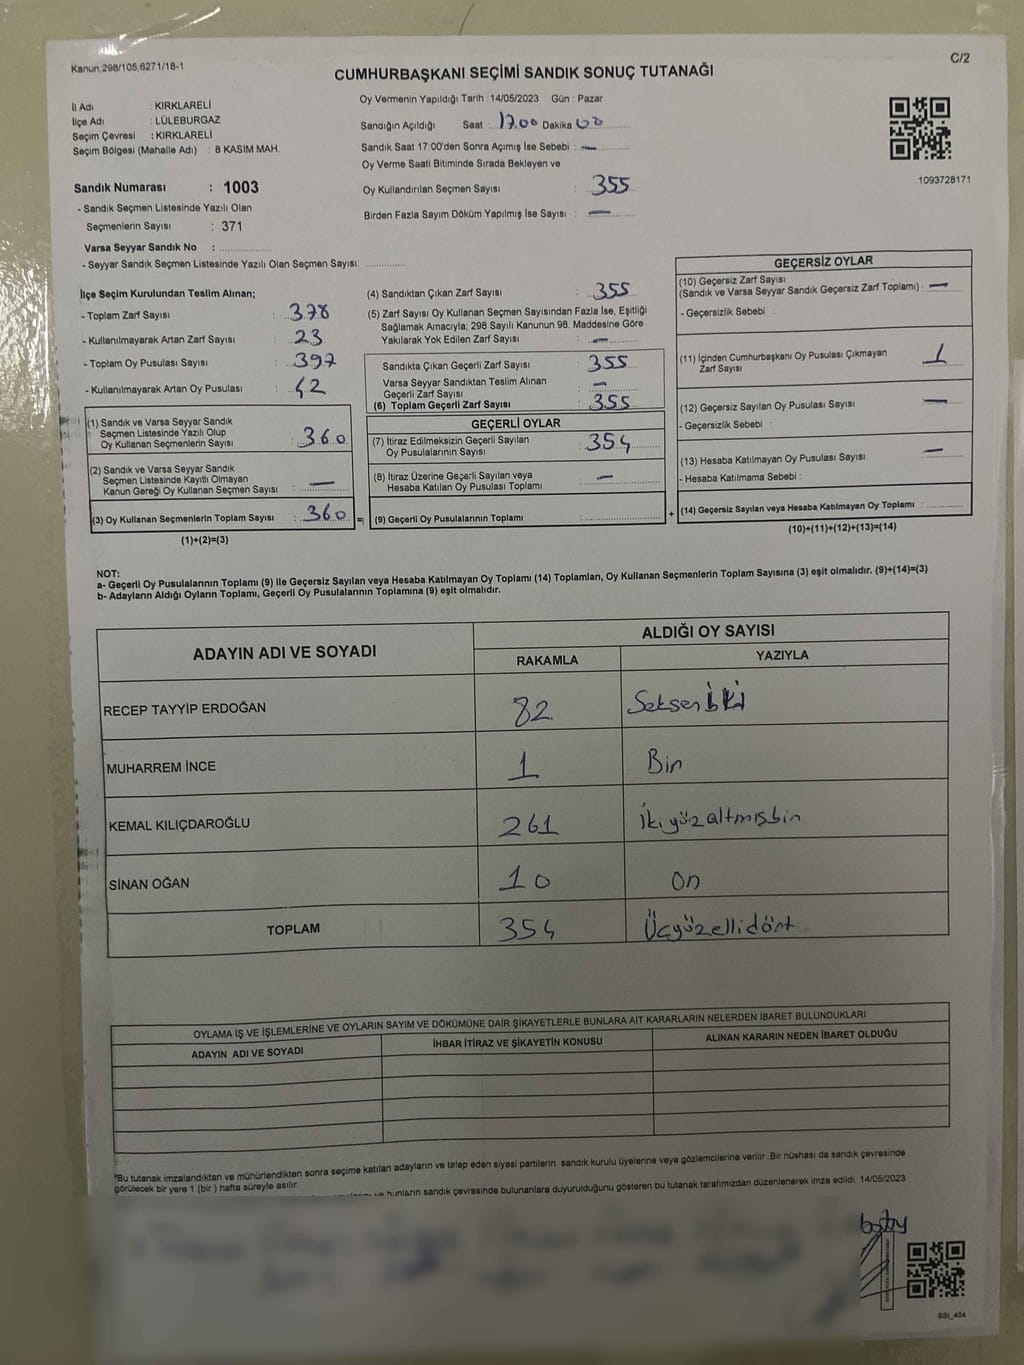 Kanun,298/105,6271/18-1
C/2
CUMHURBAŞKANI SEÇİMİ SANDIK SONUÇ TUTANAĞI
İl Adı : KIRKLARELİ
İlçe Adı : LÜLEBURGAZ
Seçim Çevresi : KIRKLARELİ
Seçim Bölgesi (Mahalle Adı) : 8 KASIM MAH.
Sandık Numarası : 1003
- Sandık Seçmen Listesinde Yazılı Olan
Seçmenlerin Sayısı : 371
Varsa Seyyar Sandık No :
- Seyyar Sandık Seçmen Listesinde Yazılı Olan Seçmen Sayısı:
Oy Vermenin Yapıldığı Tarih :14/05/2023 Gün : Pazar
Sandığın Açıldığı Saat : 17.00 Dakika 00
Sandık Saat 17:00'den Sonra Açımış İse Sebebi : —
Oy Verme Saati Bitiminde Sırada Bekleyen ve
Oy Kullandırılan Seçmen Sayısı : 355
Birden Fazla Sayım Döküm Yapılmış İse Sayısı : —
1093728171
İlçe Seçim Kurulundan Teslim Alınan;
- Toplam Zarf Sayısı : 378
- Kullanılmayarak Artan Zarf Sayısı : 23
- Toplam Oy Pusulası Sayısı : 397
- Kullanılmayarak Artan Oy Pusulası : 42
(1) Sandık ve Varsa Seyyar Sandık
Seçmen Listesinde Yazılı Olup
Oy Kullanan Seçmenlerin Sayısı : 360
(2) Sandık ve Varsa Seyyar Sandık
Seçmen Listesinde Kayıtlı Olmayan
Kanun Gereği Oy Kullanan Seçmen Sayısı : —
(3) Oy Kullanan Seçmenlerin Toplam Sayısı : 360 =
(1)+(2)=(3)
(4) Sandıktan Çıkan Zarf Sayısı : 355
(5) Zarf Sayısı Oy Kullanan Seçmen Sayısından Fazla İse, Eşitliği
Sağlamak Amacıyla; 298 Sayılı Kanunun 98. Maddesine Göre
Yakılarak Yok Edilen Zarf Sayısı : —
Sandıkta Çıkan Geçerli Zarf Sayısı : 355
Varsa Seyyar Sandıktan Teslim Alınan
Geçerli Zarf Sayısı : —
(6) Toplam Geçerli Zarf Sayısı : 355
GEÇERLİ OYLAR
(7) İtiraz Edilmeksizin Geçerli Sayılan
Oy Pusulalarının Sayısı : 354
(8) İtiraz Üzerine Geçerli Sayılan veya
Hesaba Katılan Oy Pusulası Toplamı : —
(9) Geçerli Oy Pusulalarının Toplamı : +
GEÇERSİZ OYLAR
(10) Geçersiz Zarf Sayısı
(Sandık ve Varsa Seyyar Sandık Geçersiz Zarf Toplamı) : —
- Geçersizlik Sebebi :
(11) İçinden Cumhurbaşkanı Oy Pusulası Çıkmayan
Zarf Sayısı : 1
(12) Geçersiz Sayılan Oy Pusulası Sayısı : —
- Geçersizlik Sebebi :
(13) Hesaba Katılmayan Oy Pusulası Sayısı : —
- Hesaba Katılmama Sebebi :
(14) Geçersiz Sayılan veya Hesaba Katılmayan Oy Toplamı :
(10)+(11)+(12)+(13)=(14)
NOT:
a- Geçerli Oy Pusulalarının Toplamı (9) ile Geçersiz Sayılan veya Hesaba Katılmayan Oy Toplamı (14) Toplamları, Oy Kullanan Seçmenlerin Toplam Sayısına (3) eşit olmalıdır. (9)+(14)=(3)
b- Adayların Aldığı Oyların Toplamı, Geçerli Oy Pusulalarının Toplamına (9) eşit olmalıdır.
ADAYIN ADI VE SOYADI
ALDIĞI OY SAYISI
RAKAMLA YAZIYLA
RECEP TAYYİP ERDOĞAN 82 Seksen iki
MUHARREM İNCE 1 Bir
KEMAL KILIÇDAROĞLU 261 İkiyüzaltmışbir
SİNAN OĞAN 10 On
TOPLAM 354 Üçyüzellidört
OYLAMA İŞ VE İŞLEMLERİNE VE OYLARIN SAYIM VE DÖKÜMÜNE DAİR ŞİKAYETLERLE BUNLARA AİT KARARLARIN NELERDEN İBARET BULUNDUKLARI
ADAYIN ADI VE SOYADI
İHBAR İTİRAZ VE ŞİKAYETİN KONUSU
ALINAN KARARIN NEDEN İBARET OLDUĞU
*Bu tutanak imzalandıktan ve mühürlendikten sonra seçime katılan adayların ve telep eden siyasi partilerin sandık kurulu üyelerine veya gözlemcilerine verilir. Bir nüshası da sandık çevresinde
görülecek bir yere 1 (bir) hafta süreyle asılır.
bunların sandık çevresinde bulunanlara duyurulduğunu gösteren bu tutanak tarafımızdan düzenlenerek imza edildi. 14/05/2023
SSI_404